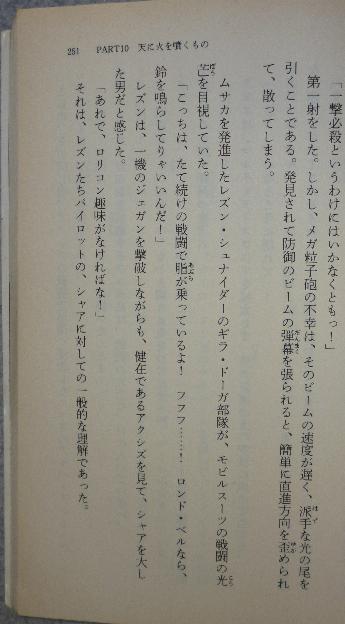 251　PART10　天に火を噴くもの
「一撃必殺というわけにはいかなくともっ！」
第一射をした。しかし、メガ粒子砲の不幸は、そのビームの速度が遅く、派手な光の尾を
引くことである。発見されて防御のビームの弾幕を張られると、簡単に直進方向を歪められ
て、散ってしまう。
ムサカを発進したレズン・シュナイダーのギラ・ドーガ部隊が、モビルスーツの戦闘の光
芒を目視していた。
「こっちは、たて続けの戦闘で脂が乗っているよ！　フフフ……！　ロンド・ベルなら、
鈴を鳴らしてりゃいいんだ！」
レズンは、一機のジェガンを撃破しながらも、健在であるアクシズを見て、シャアを大し
た男だと感じた。
「あれで、ロリコン趣味がなければな！」
それは、レズンたちパイロットの、シャアに対しての一般的な理解であった。